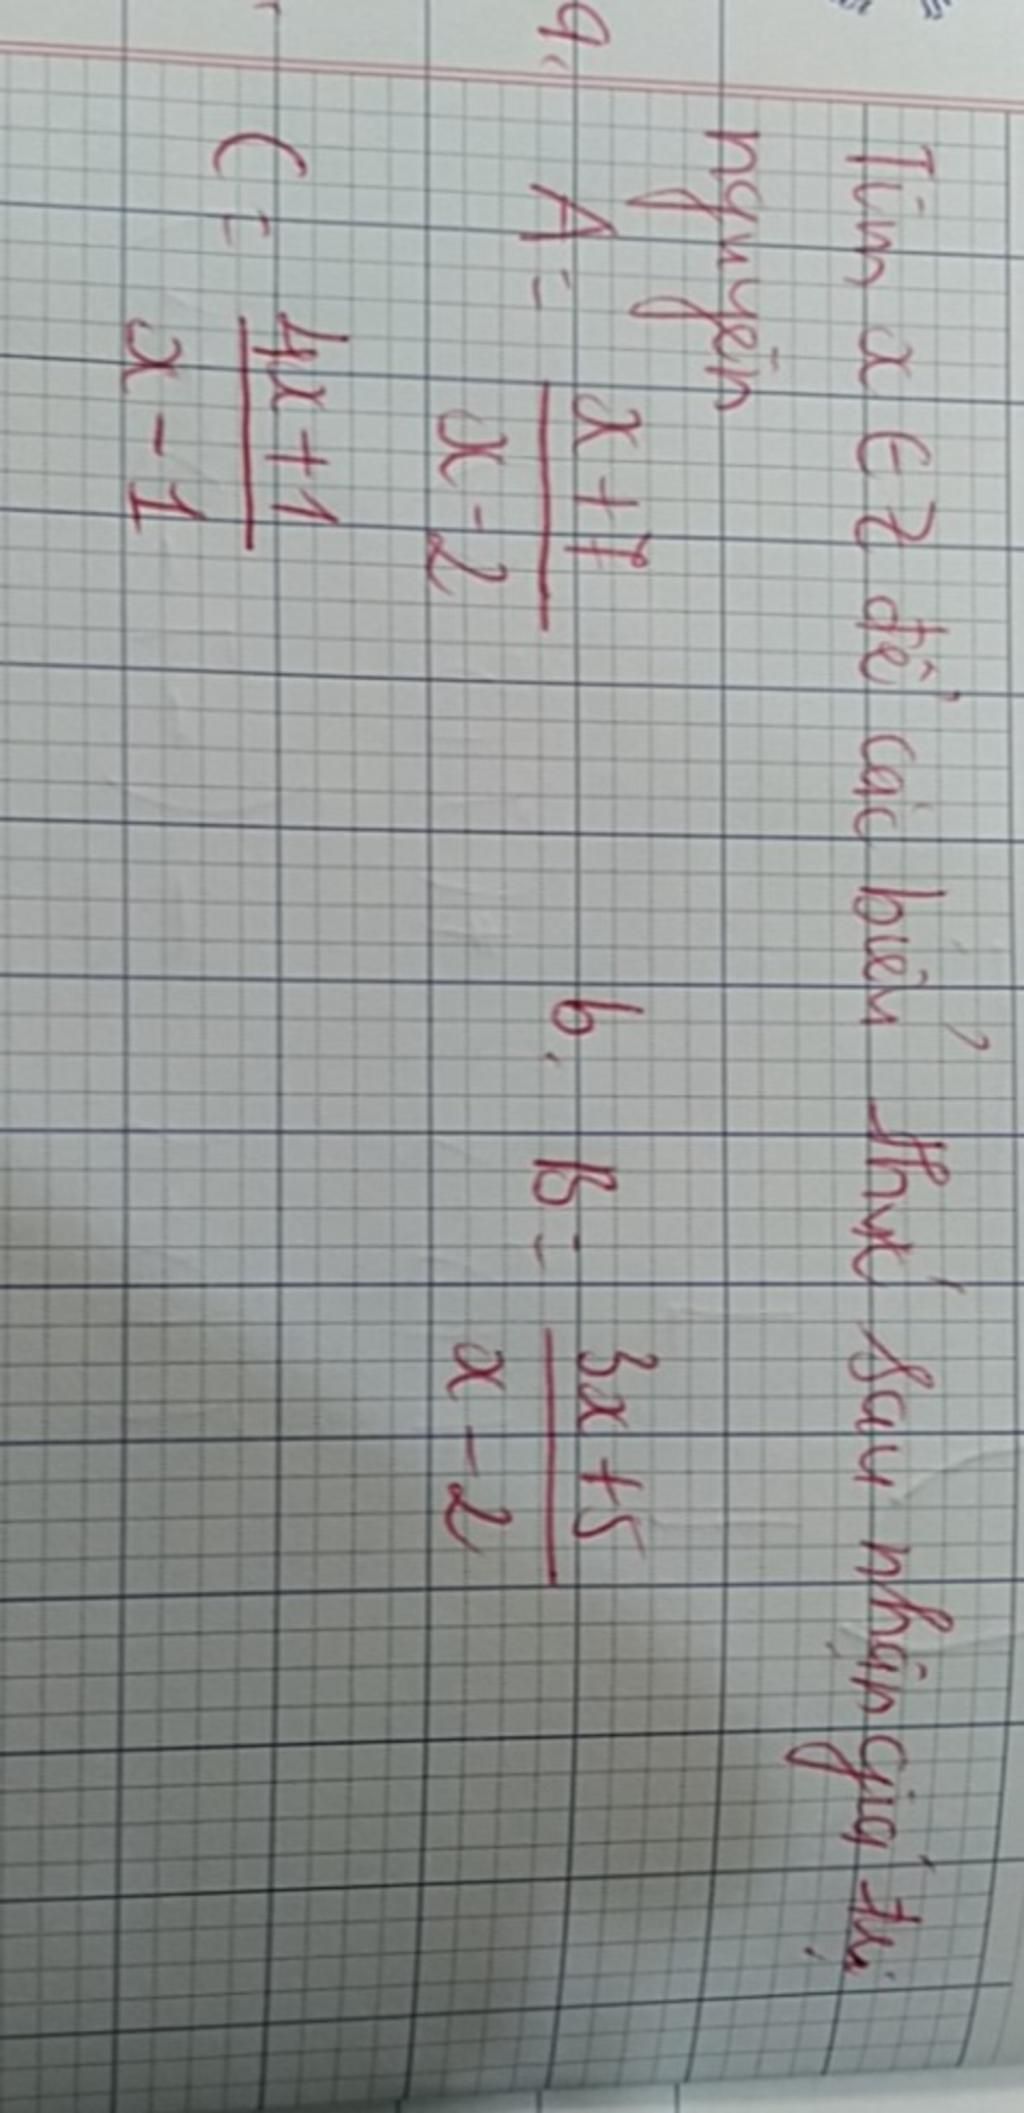 Tìm x ∈ Z để các biểu thức sau nhận giá trị
nguyên
a, A = \frac{x+7}{x-2} b, B = \frac{3x+5}{x-2}
C = \frac{4x+1}{x-1}